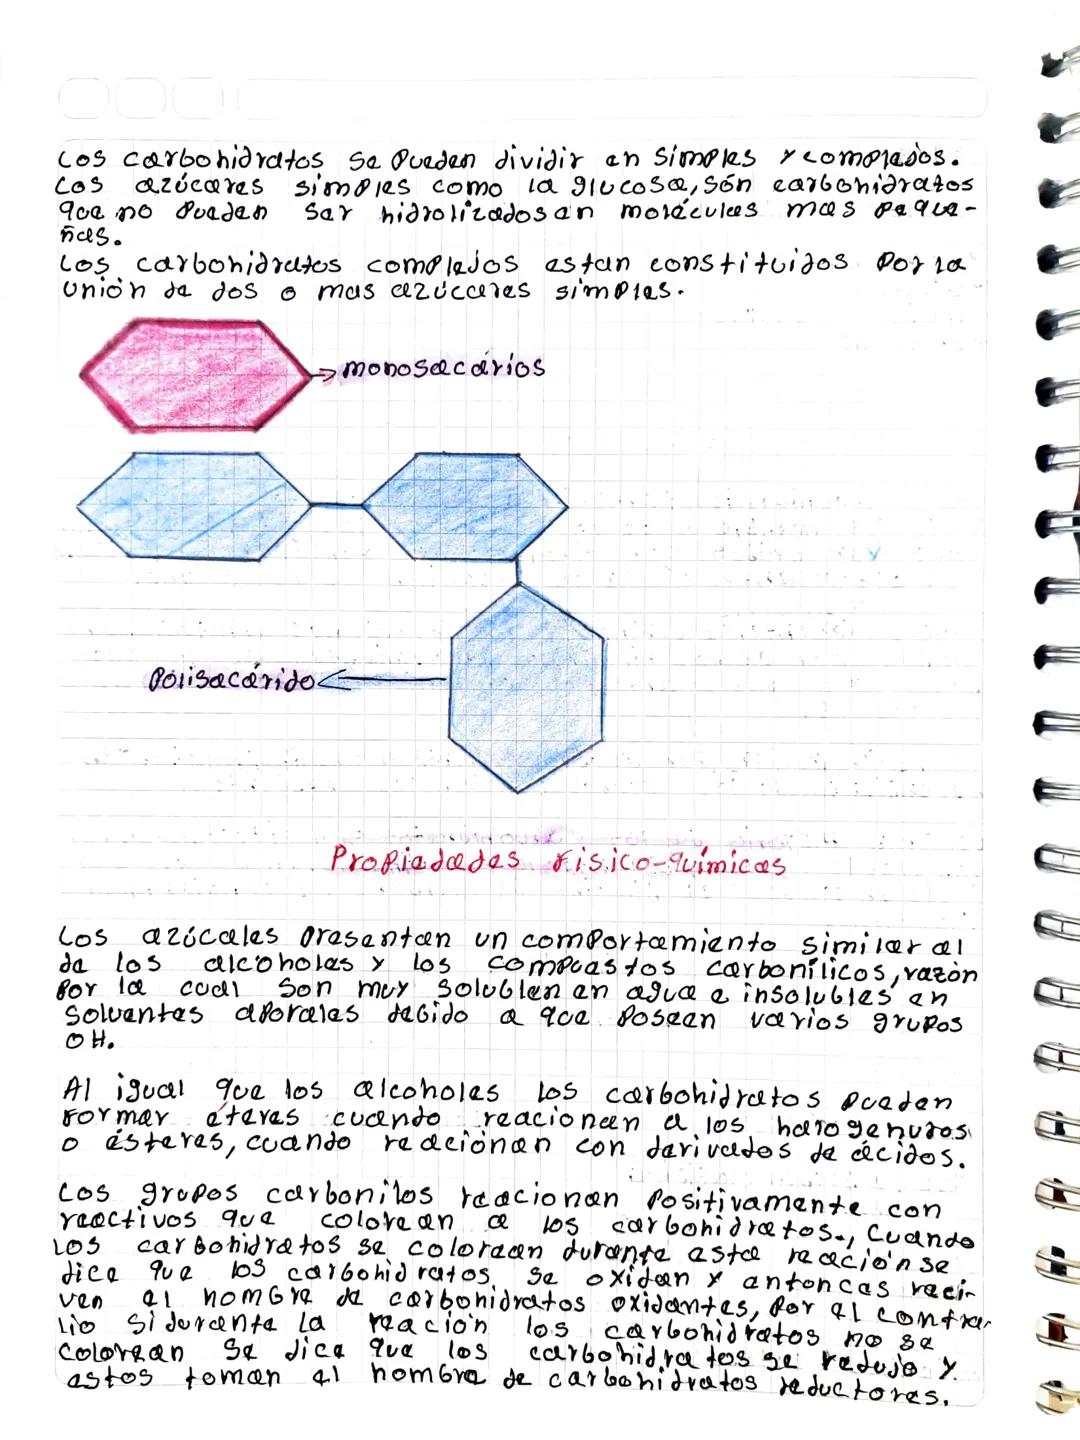 Los carbohidratos se pueden dividir en simples y complejos.
Los azúcares simples como la glucosa, són carbohidratos
que no pueden ser hidrolizados en moléculas mas peque-
ñas.
Los carbohidratos complejos estan constituidos por la
unión de dos o mas azúcares simples.
monosacários
Polisacárido
Propiedades Fisico-químicas
Los azúcales presentan un comportamiento similar al
de los alcoholes y los compuastos carbonílicos, razón
por la cual son muy solublen en agua e insolubles en
solventes aporales debido a que posean varios grupos
OH.
Al igual que los alcoholes los carbohidratos pueden
formar éteres cuando reacionan a los harogenuros
o ésteres, cuando reacionan con derivados de ácidos.
Los grupos carbonilos reacionan positivamente con
reactivos que colorean a los carbohidratos., Cuando
los carbohidratos se colorean durante esta reación se
dice que los carbohidratos se oxidan y entonces reci-
ven el nombre de carbohidratos oxidantes, por el contra-
lio si durante la reación los carbohidratos no se
colorean se dice que los carbohidratos se redujo y
estos toman el nombre de carbohidratos reductores.